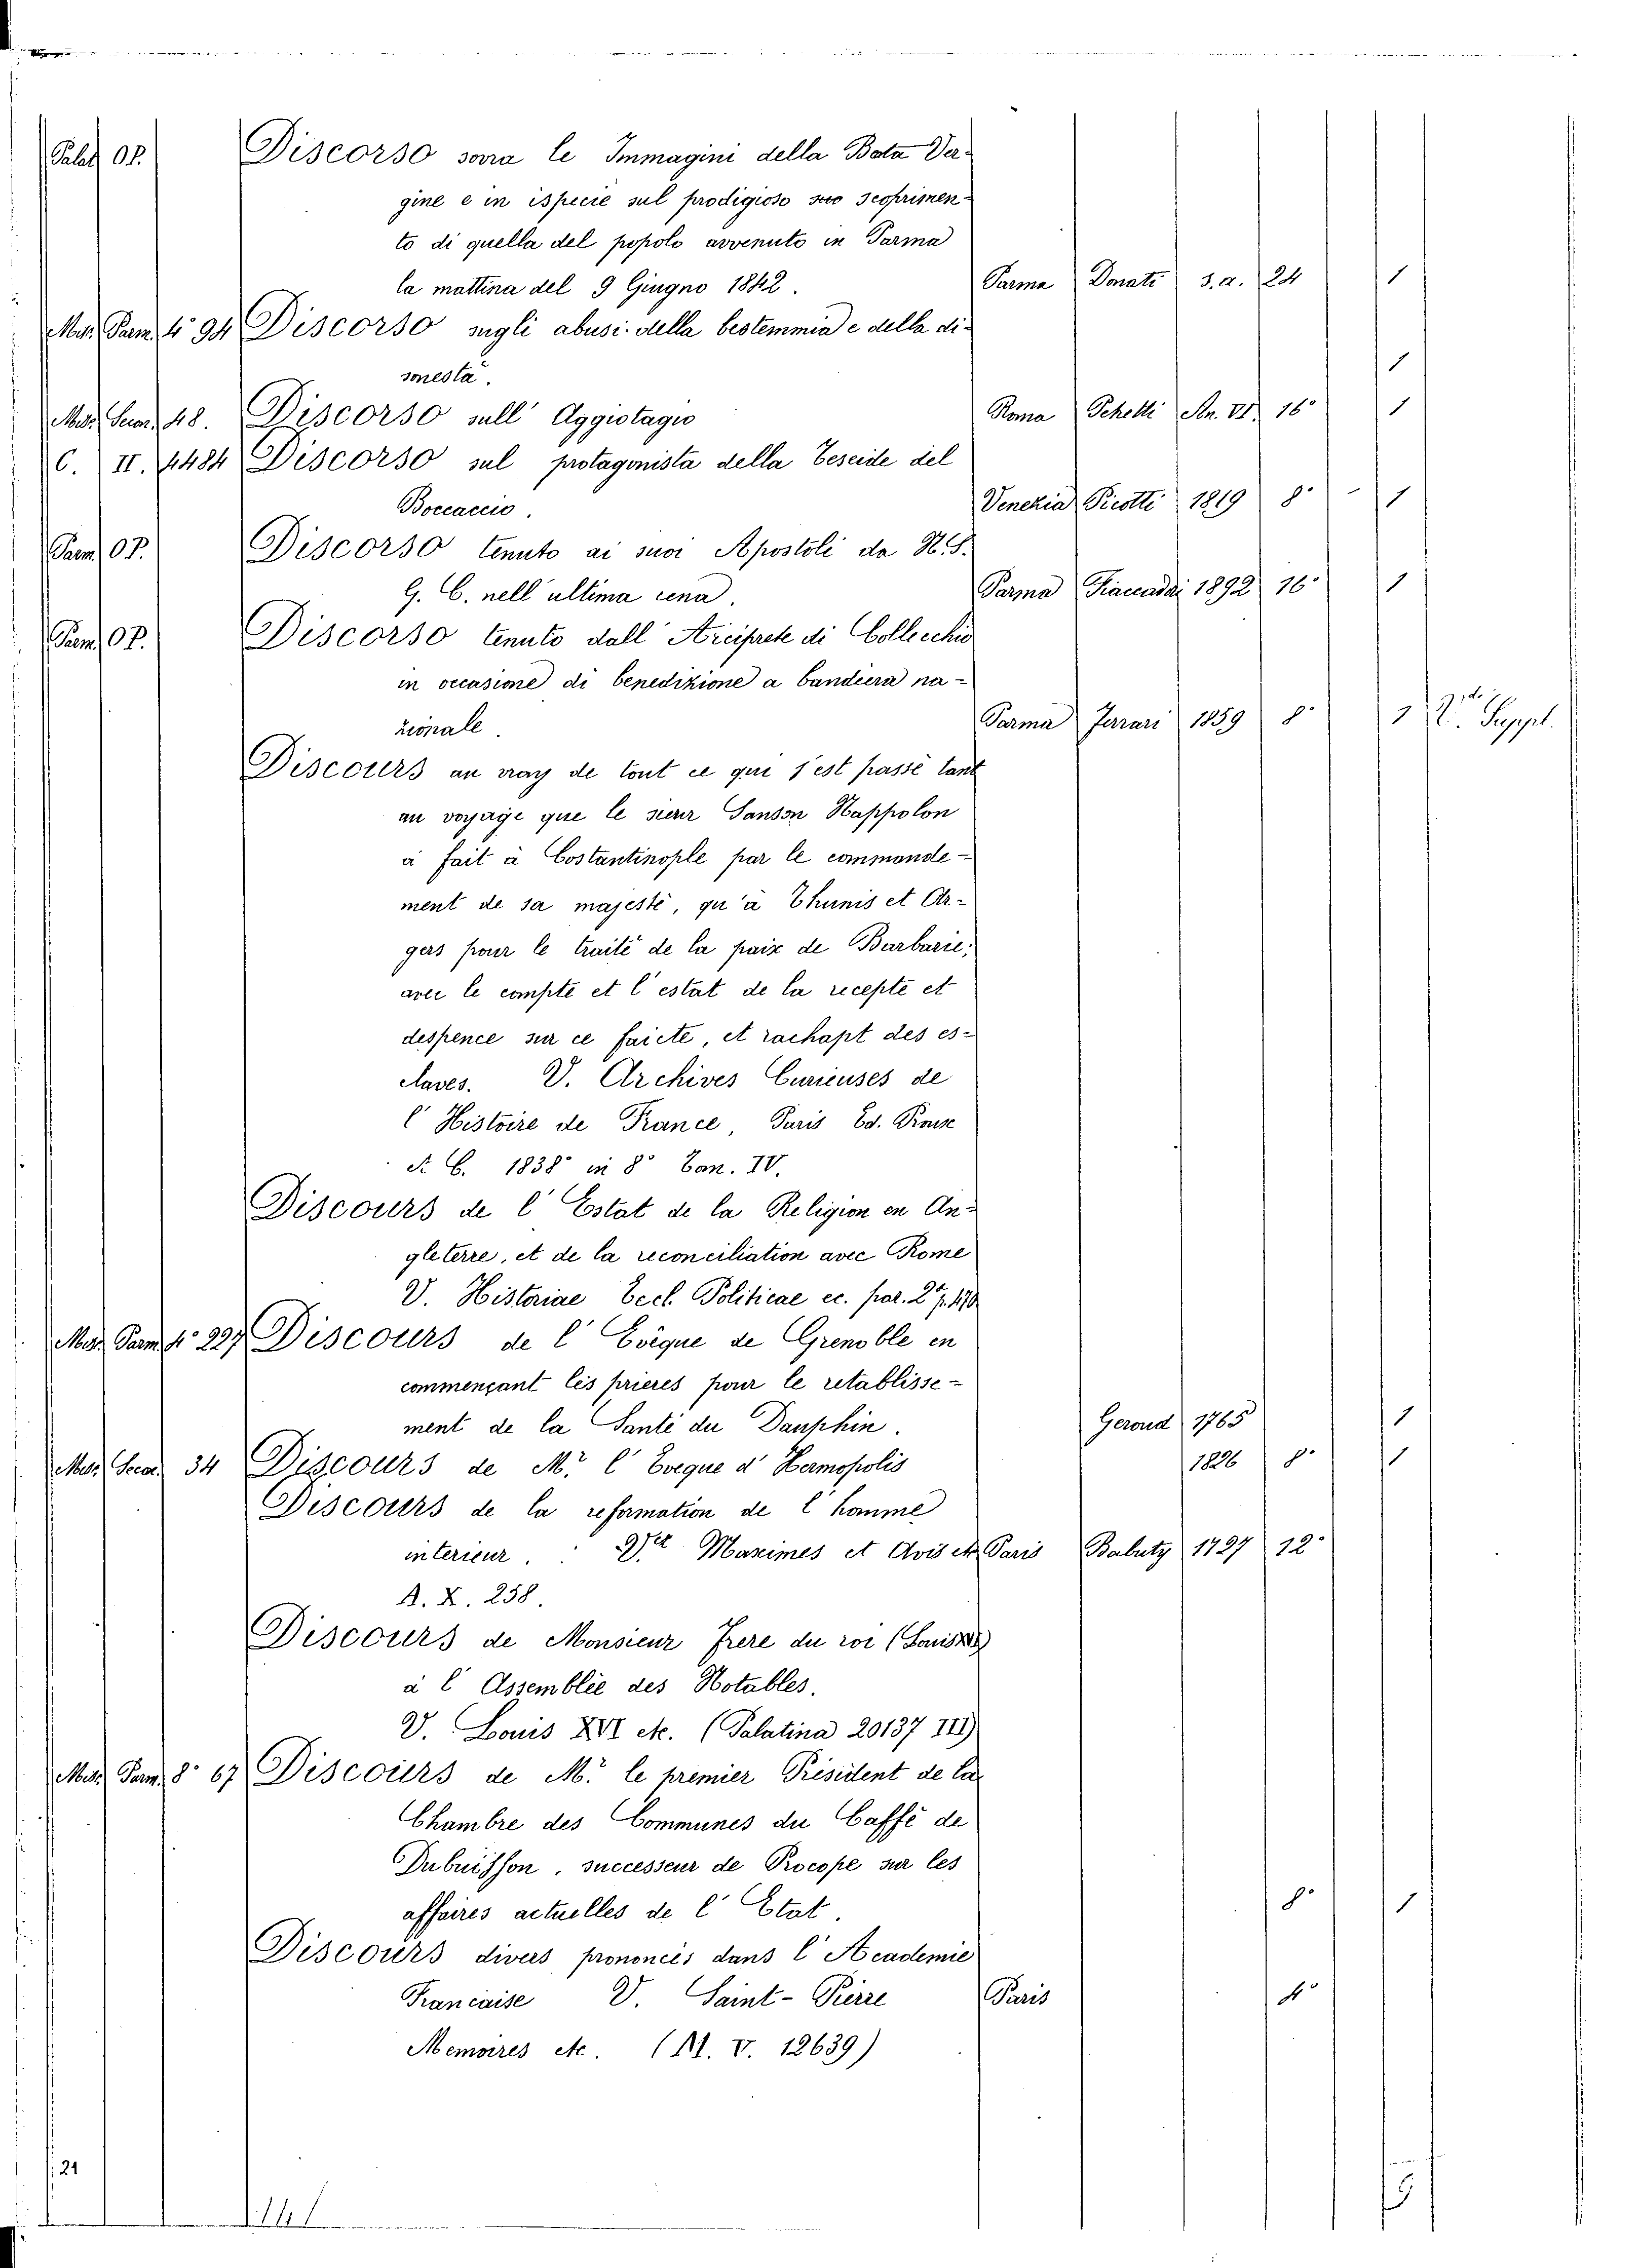 Palat OP. Discorso sovra le Immagini della Bata Ver-
gine e in ispecie sul prodigioso suo scoprimen-
to di quella del popolo avvenuto in Parma
la mattina del 9 Giugno 1842. Parma Donati s.a. 24 1
Misc. Parm. 4° 94 Discorso sugli abusi della bestemmia e della di-
sonestà. 1
Misc. 48. Discorso sull' Aggiotagio Roma 16° 1
C. II. 4484 Discorso sul protagonista della Teseide del
Boccaccio. Venezia Picotti 1819 8° 1
Parm. OP. Discorso tenuto ai suoi Apostoli da N. S.
G. C. nell' ultima cena. Parma Fiaccadori 1892 16° 1
Parm. OP. Discorso tenuto dall' Arciprete di Collecchio
in occasione di benedizione a bandiera na-
zionale. Parma Ferrari 1859 8° 1 V. Suppl.
Discours au vray de tout ce qui s'est passé tant
au voyage que le sieur Sanson Nappolon
a fait à Costantinople par le commande-
ment de sa majesté, qu'à Thunis et Ar-
gers pour le traité de la paix de Barbarie;
avec le compte et l'estat de la recepte et
despence sur ce faicte, et rachapt des es-
claves. V. Archives Curieuses de
l'Histoire de France, Paris Ed. Prouse
A C. 1838 in 8° Tom. IV.
Discours de l'Estat de la Religion en An-
gleterre, et de la reconciliation avec Rome
V. Historiae Eccl. Politicae ec. par. 2° p. 170
Misc. Parm. 4° 227 Discours de l'Evêque de Grenoble en
commençant les prieres pour le retablisse-
ment de la Santé du Dauphin. Geroud 1765 1
Misc. 34 Discours de Mr. l'Eveque d'Hermopolis 1826 8° 1
Discours de la reformation de l'homme
interieur. Maximes et Avis etc Paris Babuty 1727 12°
A. X. 258.
Discours de Monsieur Frere du roi (Louis XVI)
à l'Assemblée des Notables.
V. Louis XVI etc. (Palatina 20137 III)
Misc. Parm. 8° 67 Discours de Mr. le premier Président de la
Chambre des Communes du Caffé de
Dubuisson, successeur de Procope sur les
affaires actuelles de l'Etat. 8° 1
Discours divers prononcés dans l'Academie
Francaise V. Saint-Pierre Paris 4°
Memoires etc. (M. V. 12639)
21